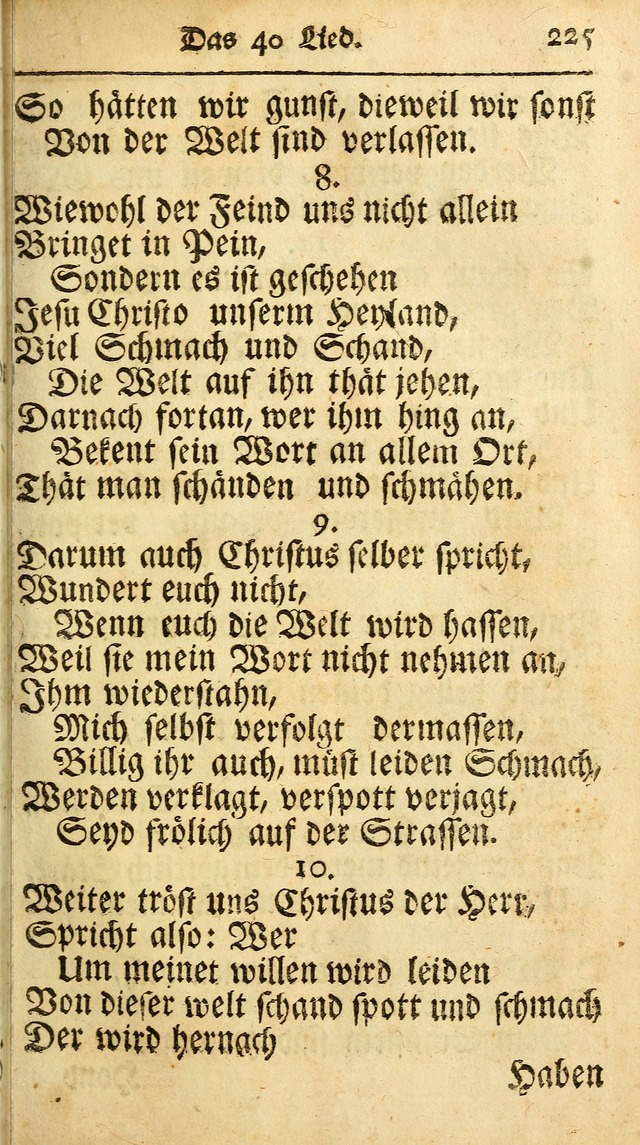 Das 40 Lied. 225
So hätten wir gunst, dieweil wir sonst
Von der Welt sind verlassen.
8.
Wiewohl der Feind uns nicht allein
Bringet in Pein,
Sondern es ist geschehen
Jesu Christo unserm Heyland,
Viel Schmach und Schand,
Die Welt auf ihn thät jehen,
Darnach fortan, wer ihm hing an,
Bekent sein Wort an allem Ort,
Thät man schänden und schmähen.
9.
Darum auch Christus selber spricht,
Wundert euch nicht,
Wenn euch die Welt wird hassen,
Weil sie mein Wort nicht nehmen an,
Ihm wiederstahn,
Mich selbst verfolgt dermassen,
Billig ihr auch, müst leiden Schmach,
Werden verklagt, verspott verjagt,
Seyd frölich auf der Strassen.
10.
Weiter tröst uns Christus der Herr,
Spricht also: Wer
Um meinet willen wird leiden
Von dieser welt schand spott und schmach
Der wird hernach
Haben